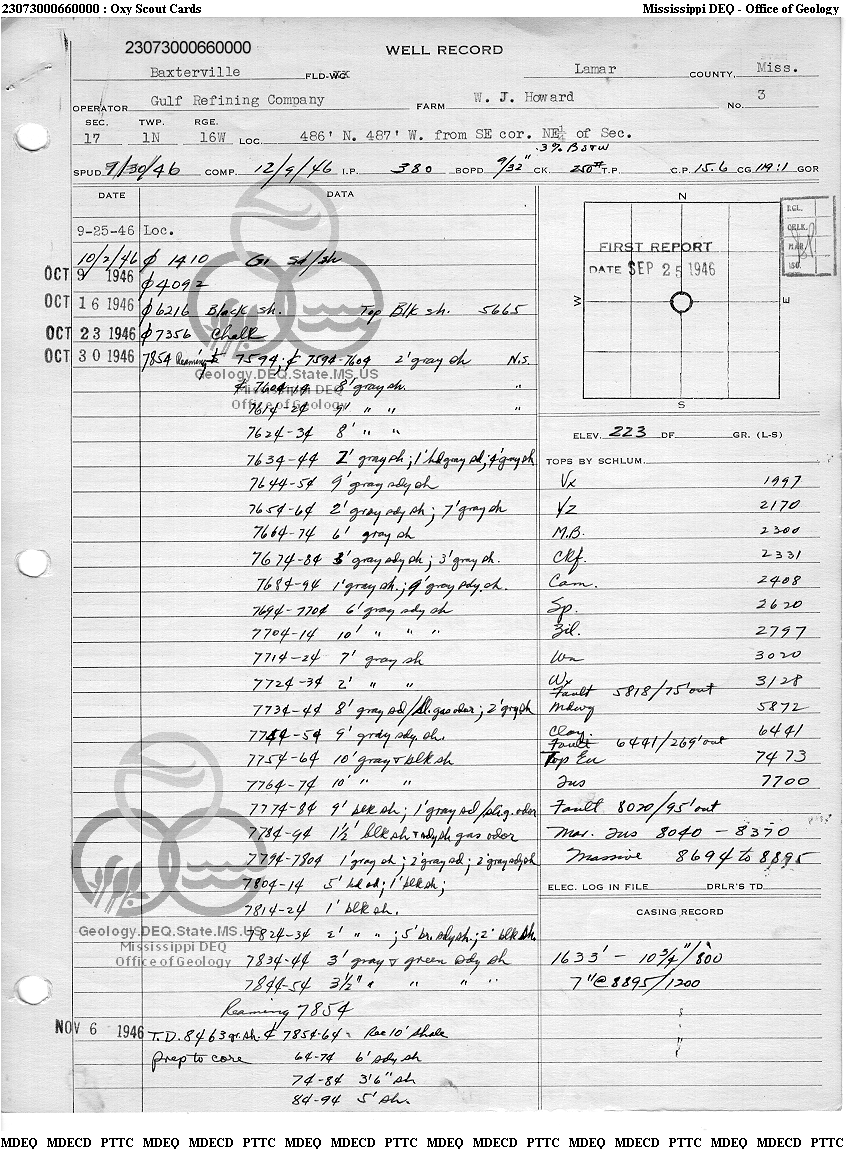 23073000660000 : Oxy Scout Cards Mississippi DEQ - Office of Geology
23073000660000
WELL RECORD
Baxterville FLD-WC Lamar COUNTY, Miss.
OPERATOR Gulf Refining Company FARM W. J. Howard NO. 3
SEC. TWP. RGE.
17 1N 16W LOC. 486' N. 487' W. from SE cor. NE¼ of Sec.
3% BS+W
SPUD 9/30/46 COMP. 12/9/46 I.P. 380 BOPD 9/32" CK. 250# T.P. C.P. 15.6 CG 119:1 GOR
DATE DATA
9-25-46 Loc.
10/2/46 ₵ 1410 Gr sd/sh
OCT 9 1946 ₵ 4092
OCT 16 1946 ₵ 6216 Black sh. Top Blk sh. 5665
OCT 23 1946 ₵ 7356 Chalk
OCT 30 1946 7854 Reaming 7594; ₵ 7594-7604 2' gray sh N.S.
₵ 7604-14 8' gray sh. "
7614-24 9' " " "
7624-34 8' " "
7634-44 2' gray sh; 1' hd gray sd; 4' gray sh
7644-54 9' gray sdy sh
7654-64 2' gray sdy sh; 7' gray sh
7664-74 6' gray sh
7674-84 3' gray sdy sh; 3' gray sh.
7684-94 1' gray sh.; 9' gray sdy sh.
7694-7704 6' gray sdy sh
7704-14 10' " " "
7714-24 7' gray sh
7724-34 2' " "
7734-44 8' gray sd/sl. gas odor; 2' gry sh
7744-54 9' gray sdy sh.
7754-64 10' gray + blk sh
7764-74 10' " "
7774-84 9' blk sh; 1' gray sd/slig. odor
7784-94 1½' blk sh + sdy sh gas odor
7794-7804 1' gray sh; 2' gray sd; 2' gray sdy sh
7804-14 5' hd sd; 1' blk sh;
7814-24 1' blk sh.
7824-34 2' " "; 5' br. sdy sh.; 2' blk sh.
7834-44 3' gray + green sdy sh
7844-54 3½' " " " "
Reaming 7854
NOV 6 1946 T.D. 8463 gr. sh. ₵ 7854-64 - Rec 10' shale
prep to core 64-74 6' sdy sh
74-84 3'6" sh
84-94 5' sh.
N
W
E
S
FIRST REPORT
DATE SEP 25 1946
MAR.
ISO.
ELEV. 223 DF. GR. (L-S)
TOPS BY SCHLUM.
Vx 1997
Vz 2170
M.B. 2300
Ckf. 2331
Cam. 2408
Sp. 2620
Zil. 2797
Wn 3020
Wx 3128
Fault 5818/75' out
Mdwy 5872
Clay. 6441
Fault 6441/269' out
Top Eu 7473
Tus 7700
Fault 8020/95' out
Mar. Tus 8040 - 8370
Massive 8694 to 8895
ELEC. LOG IN FILE DRLR'S TD
CASING RECORD
1633' - 10¾"/800
7" @ 8895/1200
Geology.DEQ.State.MS.US
Mississippi DEQ
Office of Geology
Geology.DEQ.State.MS.US
Mississippi DEQ
Office of Geology
MDEQ MDECD PTTC MDEQ MDECD PTTC MDEQ MDECD PTTC MDEQ MDECD PTTC MDEQ MDECD PTTC MDEQ MDECD PTTC